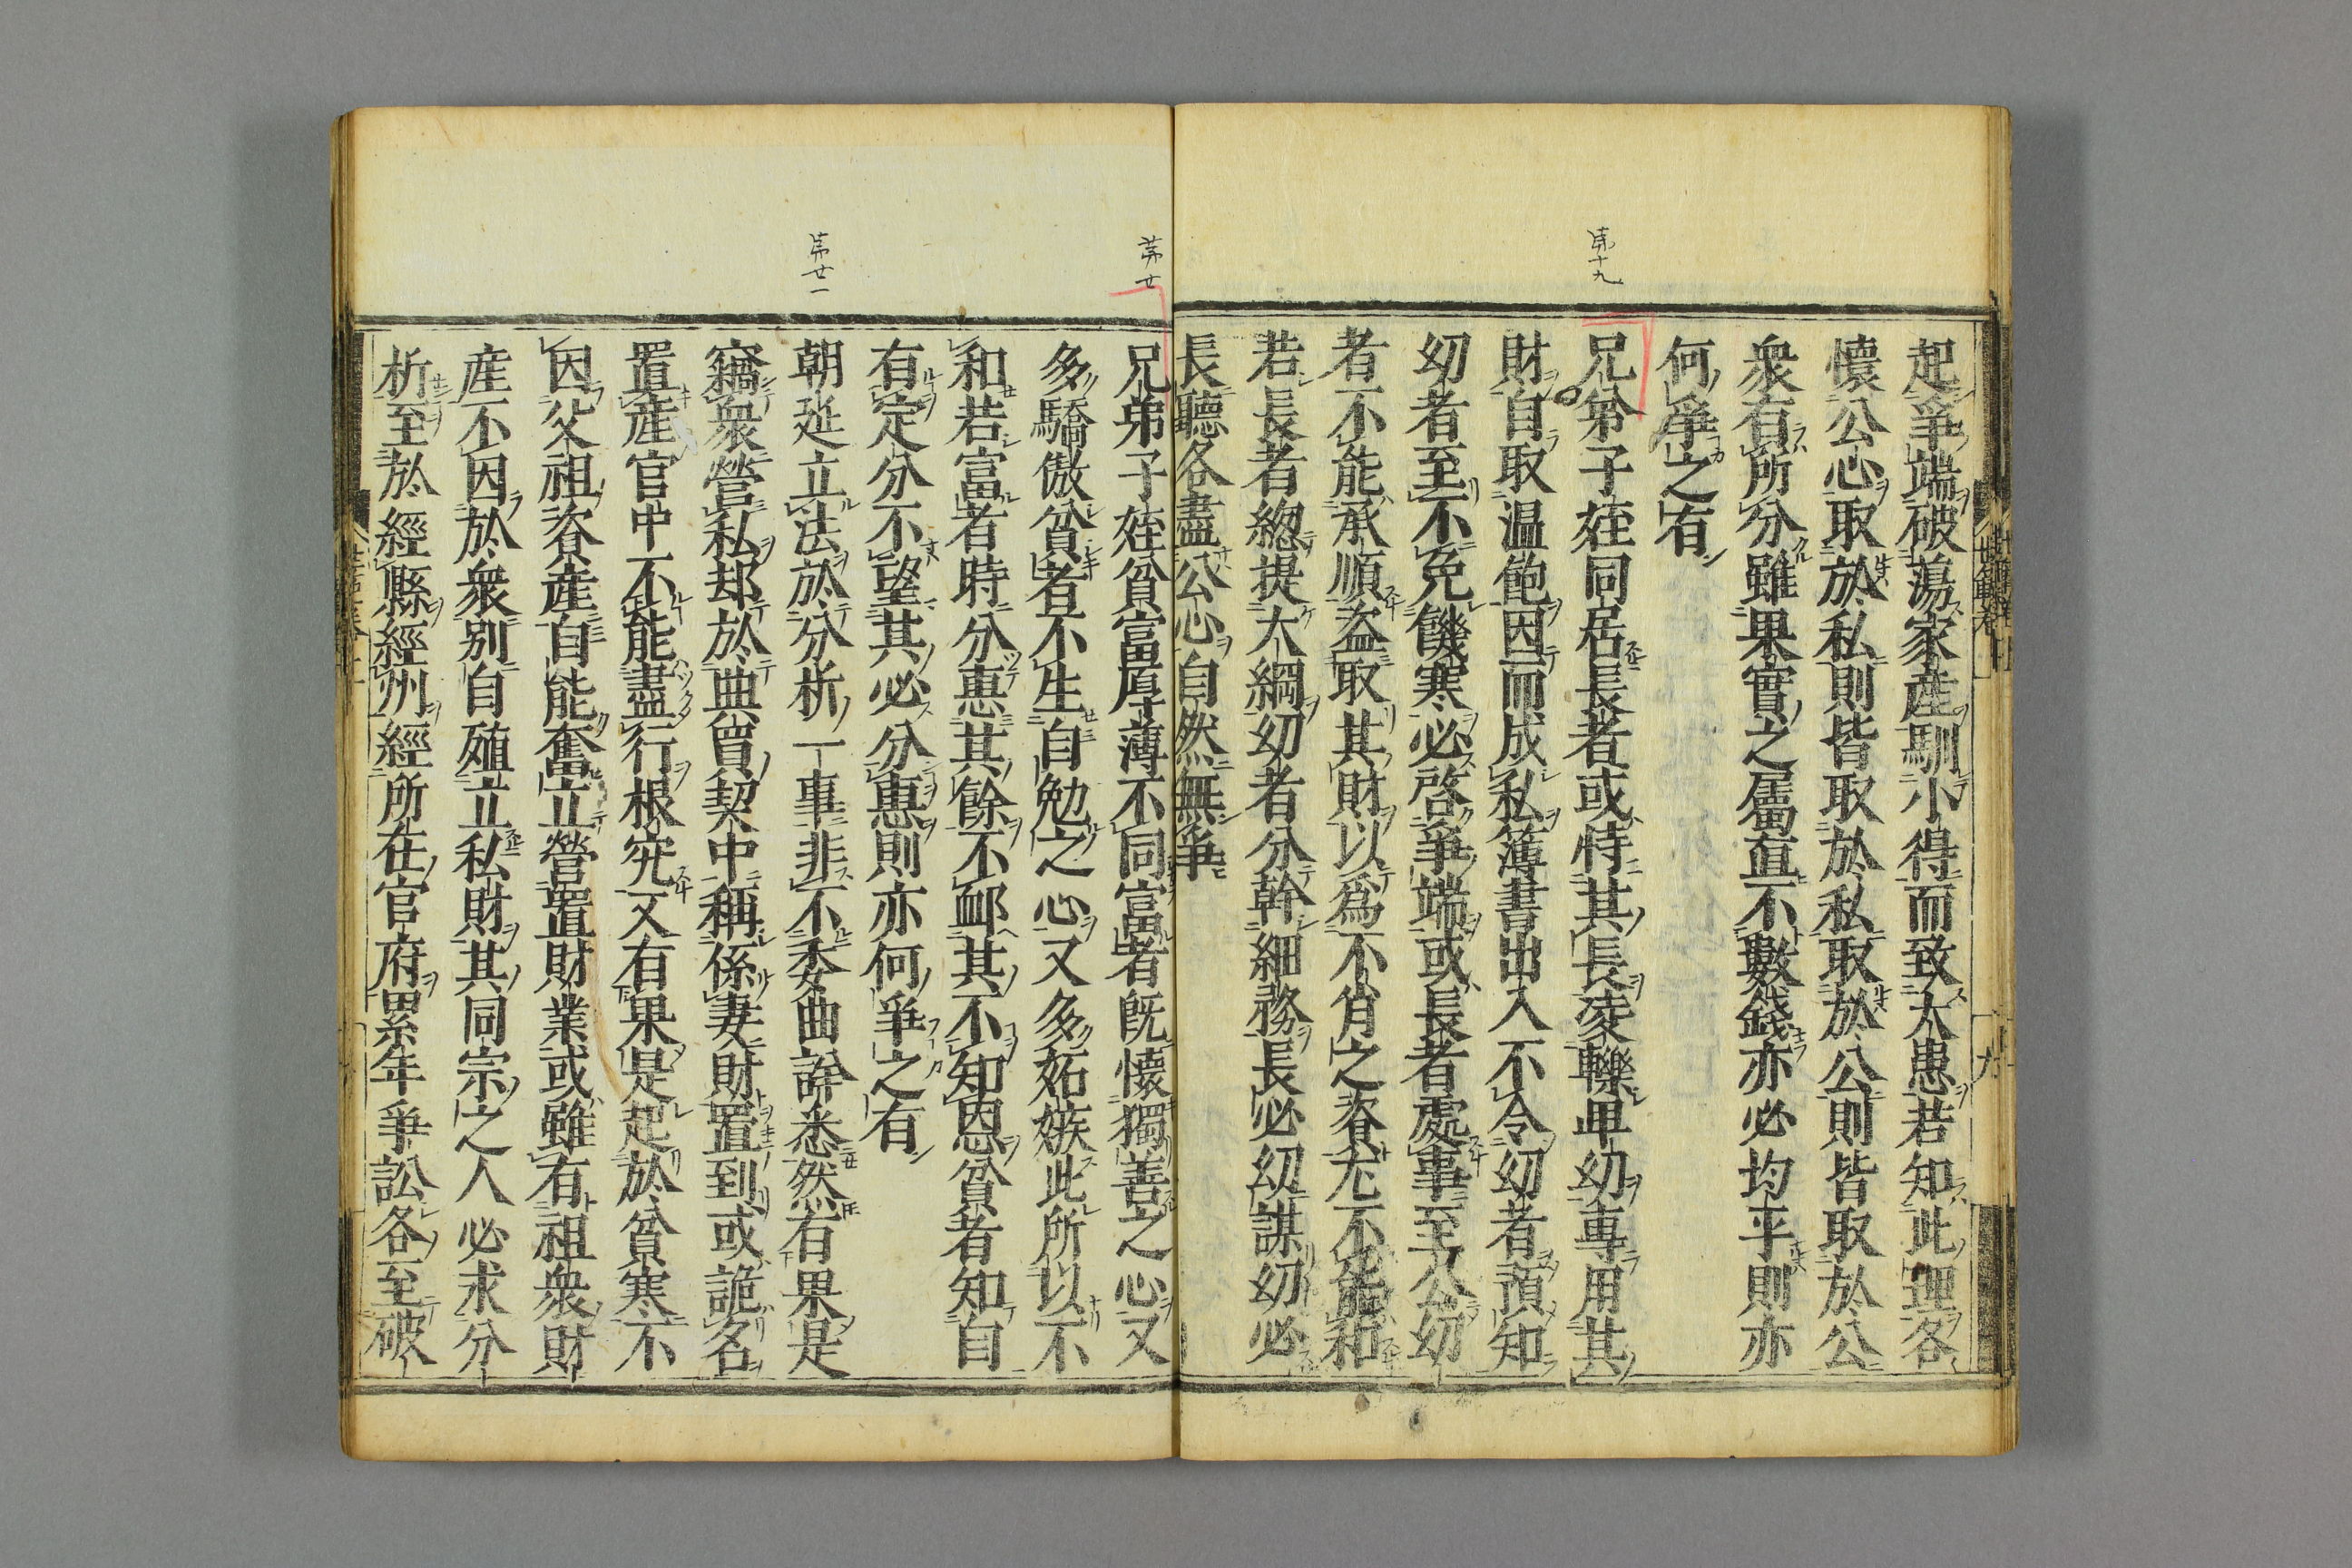 起爭端破蕩家産馴小得而致大患若知此理各
懷公心取於私則皆取於私取於公則皆取於公
衆有所分雖果實之屬直不數錢亦必均平則亦
何爭之有
第十九
兄弟子姪同居長者或恃其長凌轢卑幼專用其
財自取温飽因而成私簿書出入不令幼者預知
幼者至不免饑寒必啓爭端或長者處事至公幼
者不能承順盗取其財以爲不肖之資尤不能和
若長者總提大綱幼者分幹細務長必幼謀幼必
長聽各盡公心自然無爭
第廿
兄弟子姪貧富厚薄不同富者既懷獨善之心又
多驕傲貧者不生自勉之心又多妬嫉此所以不
和若富者時分惠其餘不䘏其不知恩貧者知自
有定分不望其必分惠則亦何爭之有
第廿一
朝廷立法於分析一事非不委曲詳悉然有果是
竊衆營私却於典買契中稱係妻財置到或詭名
置産官中不能盡行根究又有果是起於貧寒不
因父祖資産自能奮立營置財業或雖有祖衆財
産不因於衆別自殖立私財其同宗之人必求分
析至於經縣經州經所在官府累年爭訟各至破